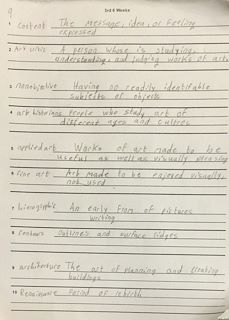 9
3rd 6 Weeks
1 content The message, idea, or feeling
expressed
2 Art critic A person whose is studying,
understanding, and judging works of art
3 nonobjective Having no readily identifiable
subjects or objects
4 art historians people who study art of
different ages and cultres
5 applied art Works of art made to be
useful as well as visually pleasing
6 fine art Art made to be enjoyed visually,
not used
7 hieroglyphic An early from of pictures
writing
8 contours outlines and surface ridges
9 architecture The art of planning and creating
buildings
10 Renaissance Period of rebirth